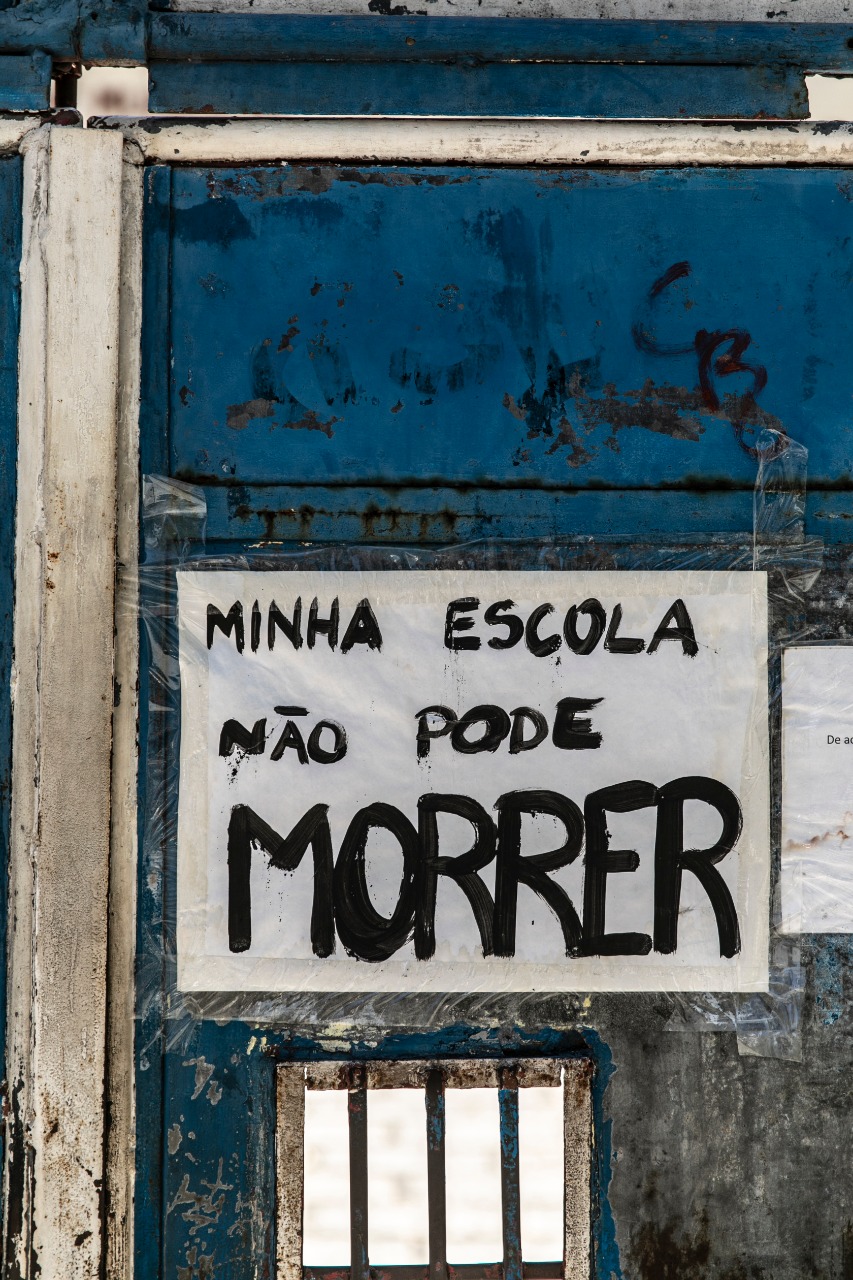 CB
MINHA ESCOLA
NÃO PODE
MORRER
De